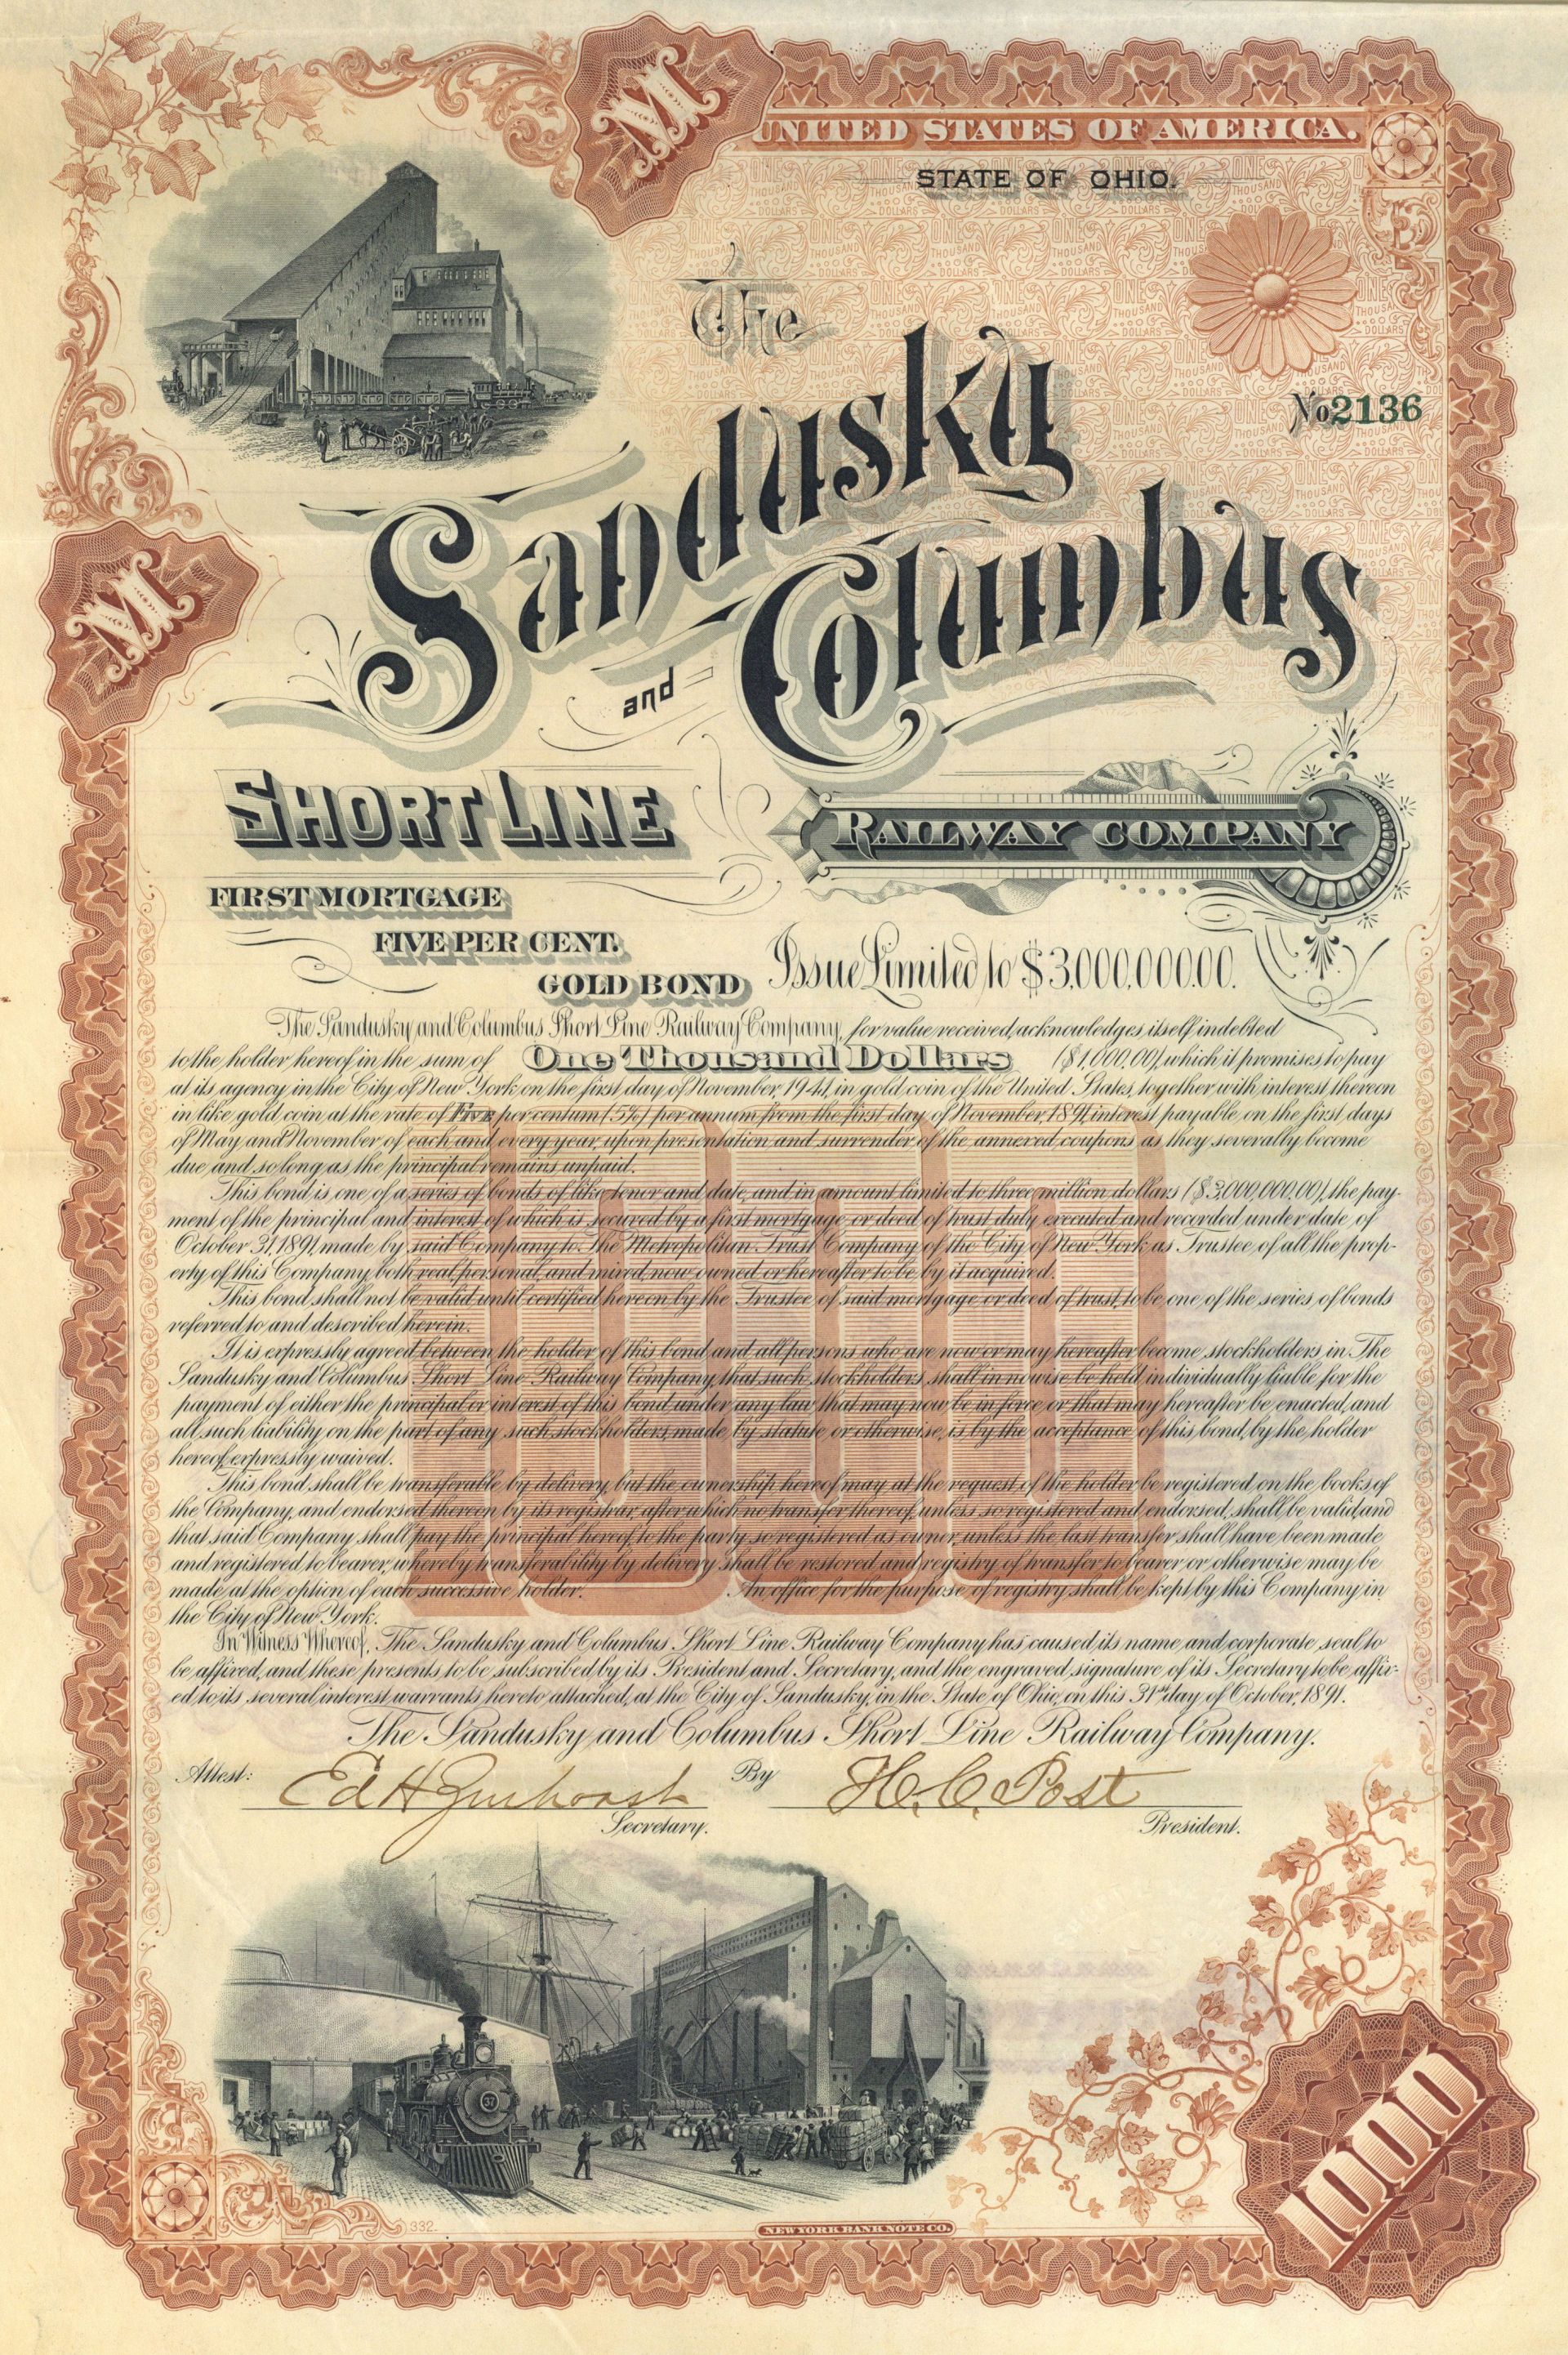 M
UNITED STATES OF AMERICA.
STATE OF OHIO.
The
No 2136
Sandusky
and
Columbus
M
SHORT LINE
RAILWAY COMPANY
FIRST MORTGAGE
FIVE PER CENT.
GOLD BOND
Issue Limited to $3,000,000.00.
The Sandusky and Columbus Short Line Railway Company, for value received, acknowledges itself indebted
to the holder hereof in the sum of One Thousand Dollars ($1,000.00), which it promises to pay
at its agency in the City of New York, on the first day of November, 1941, in gold coin of the United States, together with interest thereon
in like gold coin at the rate of Five per centum (5%) per annum from the first day of November, 1891, interest payable on the first days
of May and November of each and every year, upon presentation and surrender of the annexed coupons as they severally become
due and so long as the principal remains unpaid.
This bond is one of a series of bonds of like tenor and date, and in amount limited to three million dollars ($3,000,000.00), the pay-
ment of the principal and interest of which is secured by a first mortgage or deed of trust duly executed and recorded under date of
October 31, 1891, made by said Company to The Metropolitan Trust Company of the City of New York as Trustee of all the prop-
erty of this Company both real, personal, and mixed, now owned or hereafter to be by it acquired.
This bond shall not be valid until certified hereon by the Trustee of said mortgage or deed of trust, to be one of the series of bonds
referred to and described herein.
It is expressly agreed between the holder of this bond and all persons who are now or may hereafter become, stockholders in The
Sandusky and Columbus Short Line Railway Company, that such stockholders shall in nowise be held individually liable for the
payment of either the principal or interest of this bond under any law that may now be in force or that may hereafter be enacted, and
all such liability on the part of any such stockholders, made by statute or otherwise, is by the acceptance of this bond, by the holder
hereof, expressly waived.
This bond shall be transferable by delivery, but the ownership hereof may at the request of the holder be registered on the books of
the Company, and endorsed thereon by its registrar, after which no transfer thereof, unless so registered and endorsed, shall be valid, and
that said Company shall pay the principal hereof to the party so registered as owner, unless the last transfer shall have been made
and registered to bearer, whereby transferability by delivery shall be restored and registry of transfer to bearer or otherwise may be
made at the option of each successive holder. An office for the purpose of registry shall be kept by this Company in
the City of New York.
In Witness Whereof, The Sandusky and Columbus Short Line Railway Company has caused its name, and corporate seal to
be affixed, and these presents to be subscribed by its President and Secretary, and the engraved signature of its Secretary to be affix-
ed, to its several interest warrants hereto attached, at the City of Sandusky, in the State of Ohio, on this 31st day of October, 1891.
The Sandusky and Columbus Short Line Railway Company.
Attest: By H. C. Post
Secretary. President.
37
332.
NEW YORK BANK NOTE CO.
1000